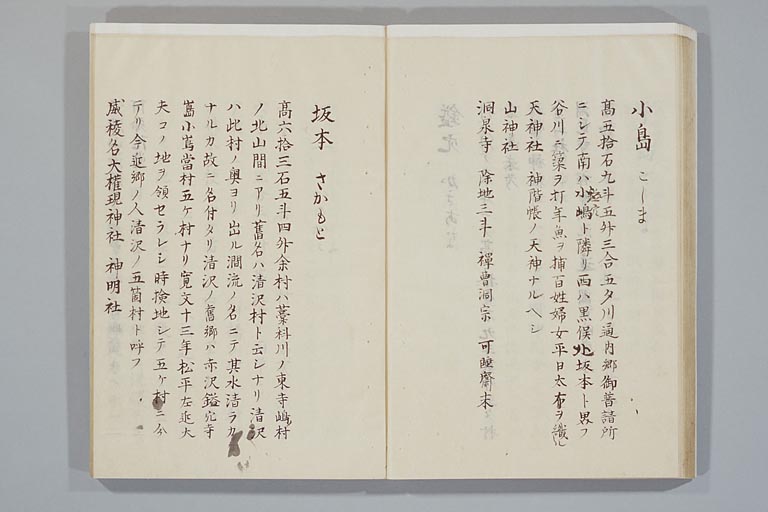 小島　こしま
高五拾石九斗五升三合五夕川通内郷御普請所
ニシテ南ハ小嶋ト隣リ西ハ黒俣北坂本ト界フ
谷川ニ簗ヲ打年魚ヲ捕百姓婦女平日太布ヲ織ル
天神社　神階帳ノ天神ナルヘシ
山神社
洞泉寺　除地三斗　禅曹洞宗　可睡齋末
坂本　さかもと
高六拾三石五斗四升余村ハ藁科川ノ東寺嶋村
ノ北山間ニアリ舊名ハ清沢村ト云シナリ清沢
ハ此村ノ奥ヨリ出ル澗流ノ名ニテ其水清ラカ
ナルカ故ニ名付タリ清沢ノ舊郷ハ赤沢鎰穴寺
嶌小嶌當村五ケ村ナリ寛文十三年松平左近大
夫コノ地ヲ領セラレシ時検地シテ五ケ村ニ分
テリ今近郷ノ人清沢ノ五箇村ト呼フ
威稜名大権現神社　神明社